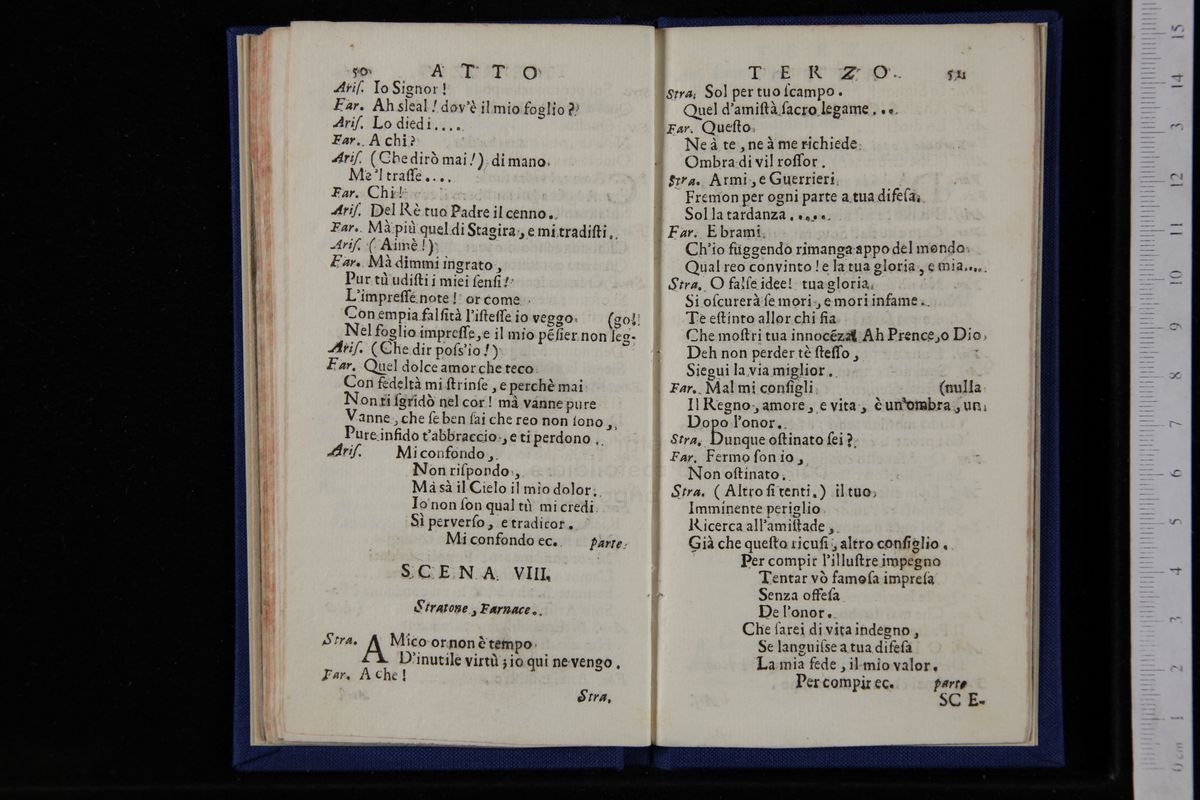 50 ATTO
Ariſ. Io Signor !
Far. Ah sleal ! dov'è il mio foglio ?
Ariſ. Lo diedi....
Far. A chi?
Ariſ. (Che dirò mai !) di mano
Me'l traſſe....
Far. Chi !
Ariſ. Del Rè tuo Padre il cenno.
Far. Mà più quel di Stagira, e mi tradiſti.
Ariſ. ( Aimè !)
Far. Mà dimmi ingrato,
Pur tù udiſti i miei ſenſi !
L'impreſſe note ! or come
Con empia falſità l'iſteſſe io veggo (go!
Nel foglio impreſſe, e il mio pẽſier non leg-
Ariſ. (Che dir poſs'io !)
Far. Quel dolce amor che teco
Con fedeltà mi ſtrinſe, e perchè mai
Non ti ſgridò nel cor ! mà vanne pure
Vanne, che ſe ben ſai che reo non ſono,
Pure infido t'abbraccio, e ti perdono.
Ariſ. Mi confondo,
Non riſpondo,
Mà sà il Cielo il mio dolor:
Io non ſon qual tù mi credi
Sì perverſo, e traditor.
Mi confondo ec. parte.
SCENA VIII.
Stratone, Farnace.
Stra. AMico or non è tempo
D'inutile virtù; io qui ne vengo.
Far. A che !
Stra.
TERZO. 51
Stra. Sol per tuo ſcampo.
Quel d'amiſtà ſacro legame....
Far. Queſto
Ne à te, ne à me richiede
Ombra di vil roſſor.
Stra. Armi, e Guerrieri
Fremon per ogni parte a tua difeſa,
Sol la tardanza.....
Far. E brami
Ch'io fuggendo rimanga appo del mondo
Qual reo convinto ! e la tua gloria, e mia....
Stra. O falſe idee! tua gloria
Si oſcurerà ſe mori, e mori infame.
Te eſtinto allor chi fia
Che moſtri tua innocẽza! Ah Prence, o Dio,
Deh non perder tè ſteſſo,
Siegui la via miglior.
Far. Mal mi conſigli (nulla
Il Regno, amore, e vita, è un'ombra, un
Dopo l'onor.
Stra. Dunque oſtinato ſei ?
Far. Fermo ſon io,
Non oſtinato.
Stra. ( Altro ſi tenti.) il tuo
Imminente periglio
Ricerca all'amiſtade,
Già che queſto ricuſi, altro conſiglio.
Per compir l'illuſtre impegno
Tentar vò famoſa impreſa
Senza offeſa
De l'onor.
Che ſarei di vita indegno,
Se languiſse a tua difeſa
La mia fede, il mio valor.
Per compir ec. parte
SCE-
15
14
13
12
11
10
9
8
7
6
5
4
3
2
1
0 cm